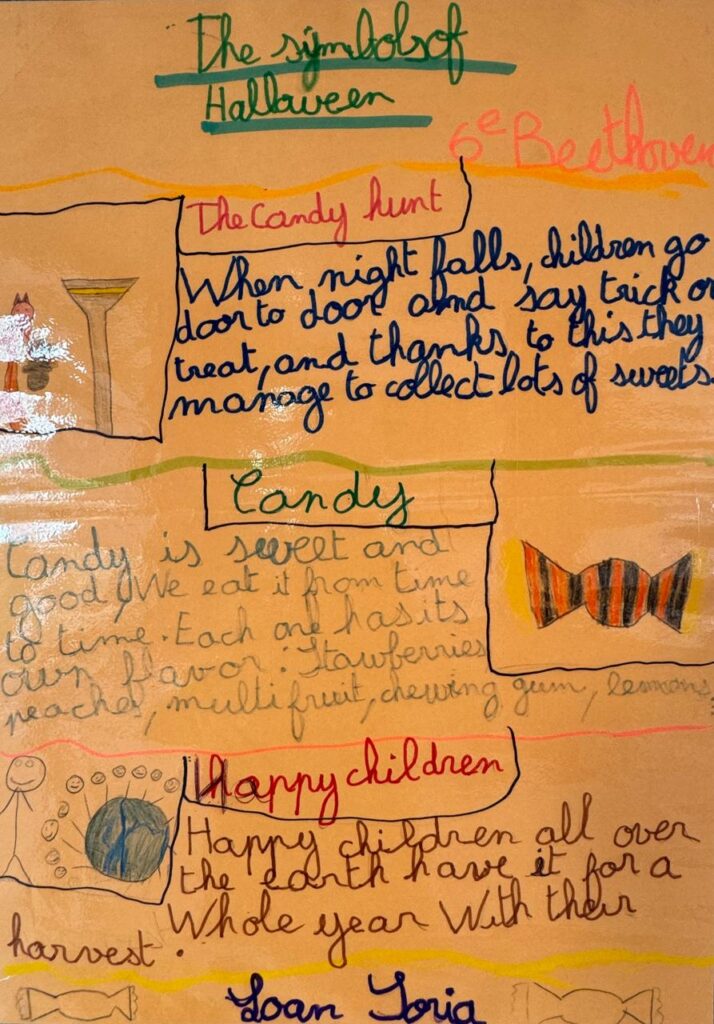 The symbols of
Hallaween
6e Beethoven
The Candy hunt
When night falls, children go
door to door amd say trick or
treat, and thanks, to this they
manage to collect lots of sweets.
Candy
Candy is sweet and
good, We eat it from time
to time. Each one has its
own flavor: Stawberries
peaches, multi fruit, chewing gum, lemons,
Happy children
Happy children all over
the earth have it for a
Whole year With their
harvest.
Loan Loria